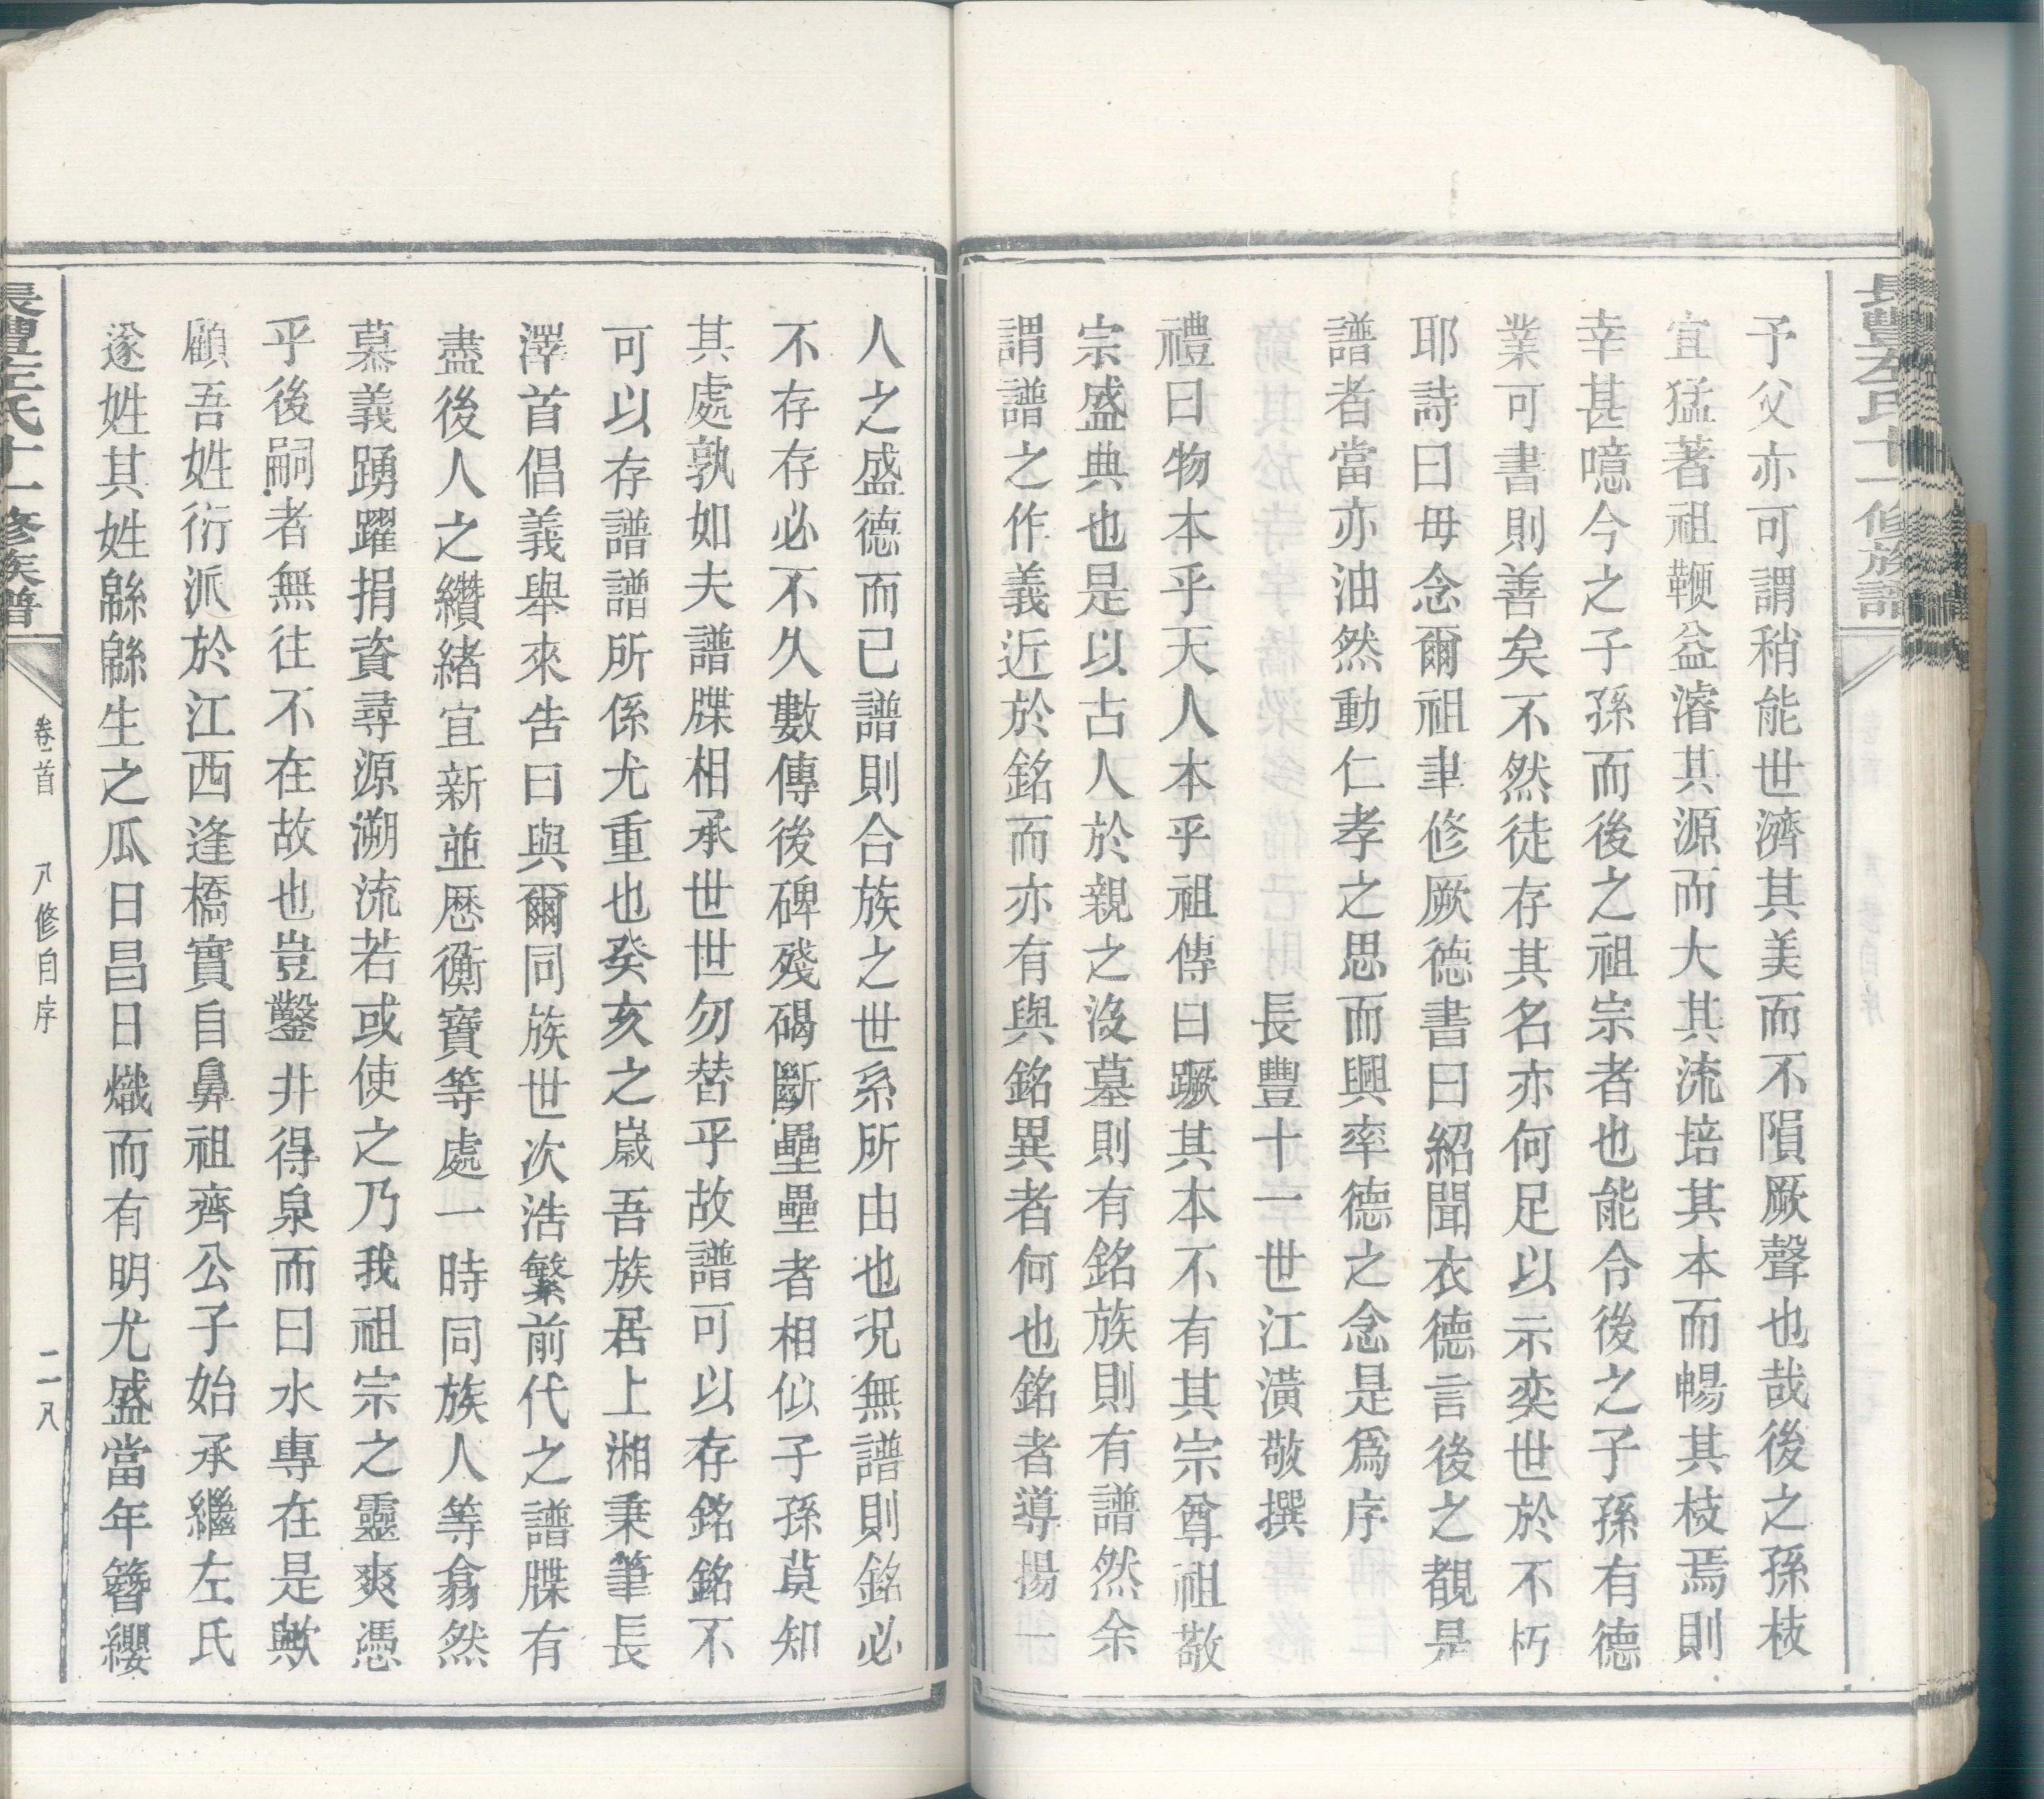 長豐左氏十一修族譜
予父亦可謂稍能世濟其美而不隕厥聲也哉後之孫枝
宜猛著祖鞭益濬其源而大其流培其本而暢其枝焉則
幸甚噫今之子孫而後之祖宗者也能令後之子孫有德
業可書則善矣不然徒存其名亦何足以示奕世於不朽
耶詩曰毋念爾祖聿修厥德書曰紹聞衣德言後之覩是
譜者當亦油然動仁孝之思而興率德之念是爲序
長豐十一世江潢敬撰
禮曰物本乎天人本乎祖傳曰蹶其本不有其宗尊祖敬
宗盛典也是以古人於親之沒墓則有銘族則有譜然余
謂譜之作義近於銘而亦有與銘異者何也銘者導揚一
人之盛德而已譜則合族之世系所由也况無譜則銘必
不存存必不久數傳後碑殘碣斷壘壘者相似子孫莫知
其處孰如夫譜牒相承世世勿替乎故譜可以存銘銘不
可以存譜譜所係尤重也癸亥之歲吾族居上湘秉筆長
澤首倡義舉來告曰與爾同族世次浩繁前代之譜牒有
盡後人之纘緒宜新並歷衡寶等處一時同族人等翕然
慕義踴躍捐資尋源溯流若或使之乃我祖宗之靈爽憑
乎後嗣者無往不在故也豈鑿井得泉而曰水專在是歟
顧吾姓衍派於江西逢橋實自鼻祖齊公子始承繼左氏
遂姓其姓緜緜生之瓜日昌日熾而有明尤盛當年簪纓
長豐左氏十一修族譜
卷首
八修自序
二八